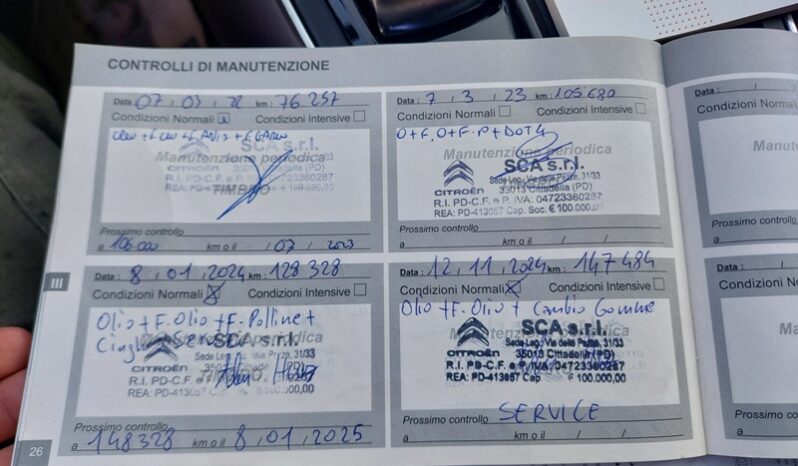 CONTROLLI DI MANUTENZIONE
Data : 07 / 03 / 22 km : 76 257
Condizioni Normali Condizioni Intensive
SCA s.r.l.
Manutenzione periodica
CITROËN 35013 Cittadella (PD)
R.I. PD-C.F. e P. IVA: 04723360287
TIMBRO
Prossimo controllo
a 106000 km o il / 03 / 2023
Data : 7 / 3 / 23 km : 105 680
Condizioni Normali Condizioni Intensive
O+F.O+F.P+DOT4
Manutenzione periodica
SCA s.r.l.
Sede Leg. Via delle Pezze, 31/33
CITROËN 35013 Cittadella (PD)
R.I. PD-C.F. e P. IVA: 04723360287
REA: PD-413057 Cap. Soc. € 100.000,00
Prossimo controllo
a km o il / /
Data : 8 / 01 / 2024 km : 128 328
Condizioni Normali Condizioni Intensive
Olio+F.Olio+F.Polline+
Cinghia Servizi
SCA s.r.l.
Sede Leg. Via delle Pezze, 31/33
CITROËN 35013 Cittadella (PD)
R.I. PD-C.F. e P. IVA: 04723360287
TIMBRO
REA: PD-413057 Cap. Soc. € 100.000,00
Prossimo controllo
a 148328 km o il 8 / 01 / 2025
Data : 12 / 11 / 2024 km : 147 484
Condizioni Normali Condizioni Intensive
Olio+F.Olio + Cambio Gomme
SCA s.r.l.
Sede Leg. Via delle Pezze, 31/33
CITROËN 35013 Cittadella (PD)
R.I. PD-C.F. e P. IVA: 04723360287
REA: PD-413057 Cap € 100.000,00
SERVICE
Prossimo controllo
a km o il / /
Data : /
Condizioni Normali
Manu
Prossimo controllo
a
Data : /
Condizioni Norma
Manu
Prossimo controllo
a
III
26